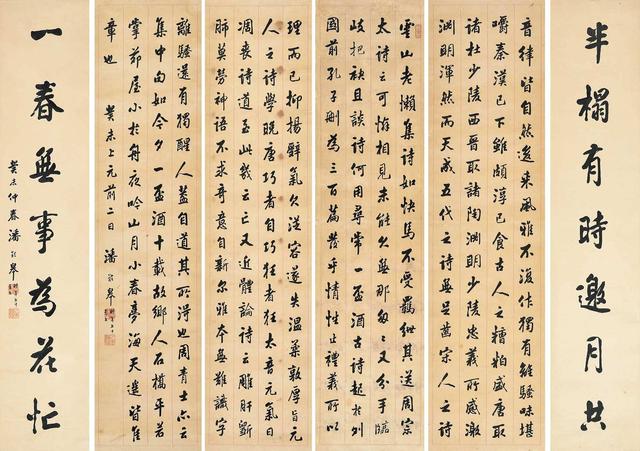 半榻有時邀月共
音律皆自然邇來風雅不復作獨有離騷味堪
嚼秦漢已下雖頗淳已食古人之糟粕盛唐取
諸杜少陵西晉取諸陶淵明少陵忠義所感激
淵明渾然而天成五代之詩無足齒宗人之詩
雲山老懶集詩如快馬不受羈紲其送周宗
太詩之可悔相見未能久無那匆匆又分手臨
岐把袂且談詩何用尋常一盃酒古詩起於列
國前孔子刪為三百篇發乎情性止禮義所以
理而已抑揚辭氣欠從容遂失溫柔敦厚旨元
人之詩學晚唐巧者自巧狂者狂太音元氣日
凋喪詩道至此幾云亡又雜體論詩云雕肝劉
肺莫勞神語不求奇意自新爾雅本無難識字
離騷還有獨醒人蓋自道其所得也周青士亦云
集中句如今夕一盃酒十載故鄉人石橋平若
掌茆屋小於舟夜吟山月小春夢海天遙皆隹
章也 癸未上元前二日 潘齡皋
一春無事為花忙
癸未仲春潘齡皋